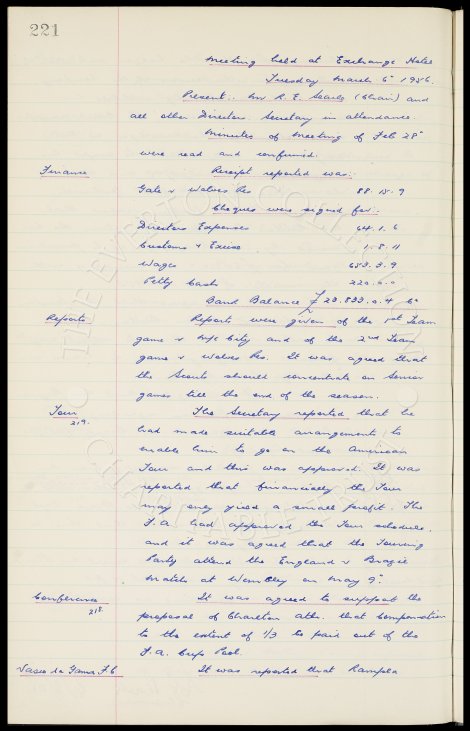 221
Meeting held at Exchange Hotel
Tuesday March 6" 1956.
Present.. Mr R. E. Searle (Chair) and
all other Directors Secretary in attendance.
Minutes of Meeting of Feb 28"
were read and confirmed.
Finance
Receipt reported was:
Gate v Wolves Res 88.15.9
Cheques were signed for:
Directors Expenses 64.1.6
Customs & Excise 1.8.11
Wages 653.3.9
Petty Cash 220.0.0
Bank Balance £23,833.0.4
Reports
Reports were given of the 1st Team
game v M/c City and of the 2nd Team
game v Wolves Res. It was agreed that
the Scouts should concentrate on Senior
games till the end of the season.
Tour
219.
The Secretary reported that he
had made suitable arrangements to
enable him to go on the American
Tour and this was approved. It was
reported that financially the Tour
may only yield a small profit. The
F.A. had approved the Tour schedule.
and it was agreed that the Touring
Party attend the England v Brazil
match at Wembley on May 9".
Conference
218.
It was agreed to support the
proposal of Charlton Ath. that Compensation
to the extent of 1/3 be paid out of the
F.A. Cup Pool.
Vasco da Gama F.C
It was reported that Rampla
THE EVERTON COLLECTION
CHARITABLE TRUST